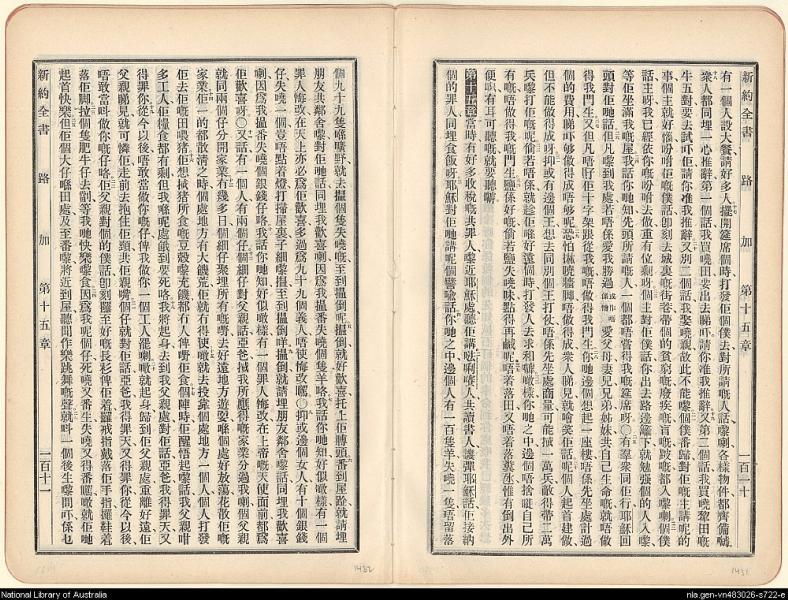 新約全書 路加 第十五章 一百一十
有一個人設大餐請好多人擺開筵席個時打發佢個僕去對所請嘅人話嚟喇各樣物件都齊備喇
衆人都同埋一心推辭第一個話我買嘵田要出去睇吓請你准我推辭又第二個話我買嘵犂田嘅
牛五對要去試吓佢請你准我推辭又別二個話我娶嘵親故此不能嚟個僕番歸對佢嘅主講呢的
事個主就好嬲吩咐佢嘅僕話卽刻去城裏嘅街巷帶個的貧窮嘅廢疾嘅盲嘅跛嘅都入嚟喇個僕
話主呀我已經依你嘅吩咐去做重有位剩呀個主對僕話你出去路邊籬下就勉強個的人入嚟
等佢坐滿我嘅屋我話你哋知先頭所請嘅人一個都唔嘗得我嘅筵席呀〇有羣衆同佢行耶穌回
頭對佢哋話但凡嚟到我處若唔係愛我勝過 愛父母妻兒兄弟姊妹共自己生命嘅就唔做
得我門生又但凡唔孭佢十字架跟從我嘅唔做得我門生你哋邊個想起一座樓唔係先坐處計過
個的費用睇吓够做得成唔够呢恐怕淋嘵牆脚唔做得成衆人睇見就啽笑佢話呢個人起首建做
但不能做得成呀抑或有邊個王想去同別個王打仗唔係先坐處商量可能揻一萬兵敵得帶二萬
兵嚟打佢嘅呢偷若唔係就趁佢唔好遠個時打發人去求和噉你哋之中邊個唔捨嘵自己所
有嘅唔做得我嘅門生鹽係好嘅偷若鹽失嘵味點得再鹹呢唔着落田又唔着落糞氹惟有倒出外
便哄有耳可聽嘅就要聽喇
第十五章 當時有好多收稅嘅共罪人嚟近耶穌處聽佢講𠸎唎嚹人共讀書人譏彈耶穌話佢接納
個的罪人同埋食飯呀耶穌對佢哋講呢個譬喻話你哋之中邊個人有一百隻羊失嘵一隻唔留落
個九十九隻喺曠野就去揾個隻失嘵嘅至到揾倒呢揾倒就好歡喜托上佢膊頭番到屋企就請埋
朋友共鄰舍嚟對佢哋話同埋我歡喜喇因爲我揾番失嘵個隻羊咯我話你哋知好似噉樣有一個
罪人悔改在天上亦必爲佢歡喜多過爲九十九個義人唔使悔改嘅〇抑或邊個女人有十個銀錢
仔失嘵一個豈唔點着燈打掃屋裏子細嚟揾至到揾倒咩揾倒就請埋朋友鄰舍嚟話同埋我歡喜
喇因爲我揾番失嘵個銀錢仔咯我話你哋知好似噉樣有一個罪人悔改在上帝嘅天使面前都爲
佢歡喜呀〇又話有一個人有兩個仔個細仔對父親話亞爸揻我所應得嘅家業分過我喇個父親
就同兩個仔分開家業有幾多日個細仔聚埋所有嘅嘢去好遠地方遊耍喺個處好放蕩花散佢嘅
家業佢一的都散清之時個處地方有大饑荒佢就有得使噉就去投靠個處地方一個人個人打發
佢去佢嘅田喂猪佢想揻猪所食嘅荳殼嚟充饑都有人俾嘢佢食個陣時佢醒悟起嚟話我父親咁
多工人佢糧食都有剩但我喺呢處餓到要死咯我將起身去到我父親處對佢話亞爸我得罪天又
得罪你從今以後唔敢當做你嘅仔俾我做你一個工人罷喇噉就起身歸到佢父親處重離好遠佢
父親睇見就可憐佢走前去抱住佢頸共佢親嘴個仔就對佢話亞爸我得罪天又得罪你從今以後
唔敢當叫做你嘅仔咯佢父親對個的僕話卽刻攞至好嘅長衫俾佢着羅戒指戴落佢手指攞鞋着
落佢脚拉個隻肥牛仔去劏等我哋快樂嚟食因爲我呢個仔死嘵又番生失嘵又得番嘅噉就佢哋
起首快樂但佢個大仔喺田處及至番嚟將近到屋聽聞作樂跳舞嘅聲就叫一個後生嚟問吓係乜
新約全書 路加 第十五章 一百十一
1432
1431
National Library of Australia
nla.gen-vn483026-s722-e